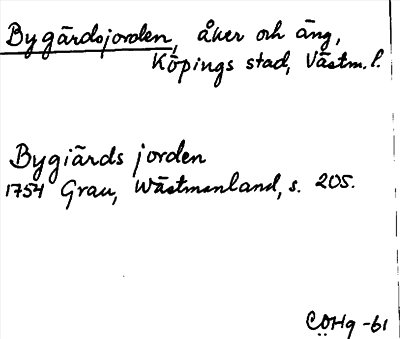 Bygärdsjorden, åker och äng,
Köpings stad, Västm. l.
Bygiärds jorden
1754 Grau, Wästmanland, s. 205.
CÖHg -61